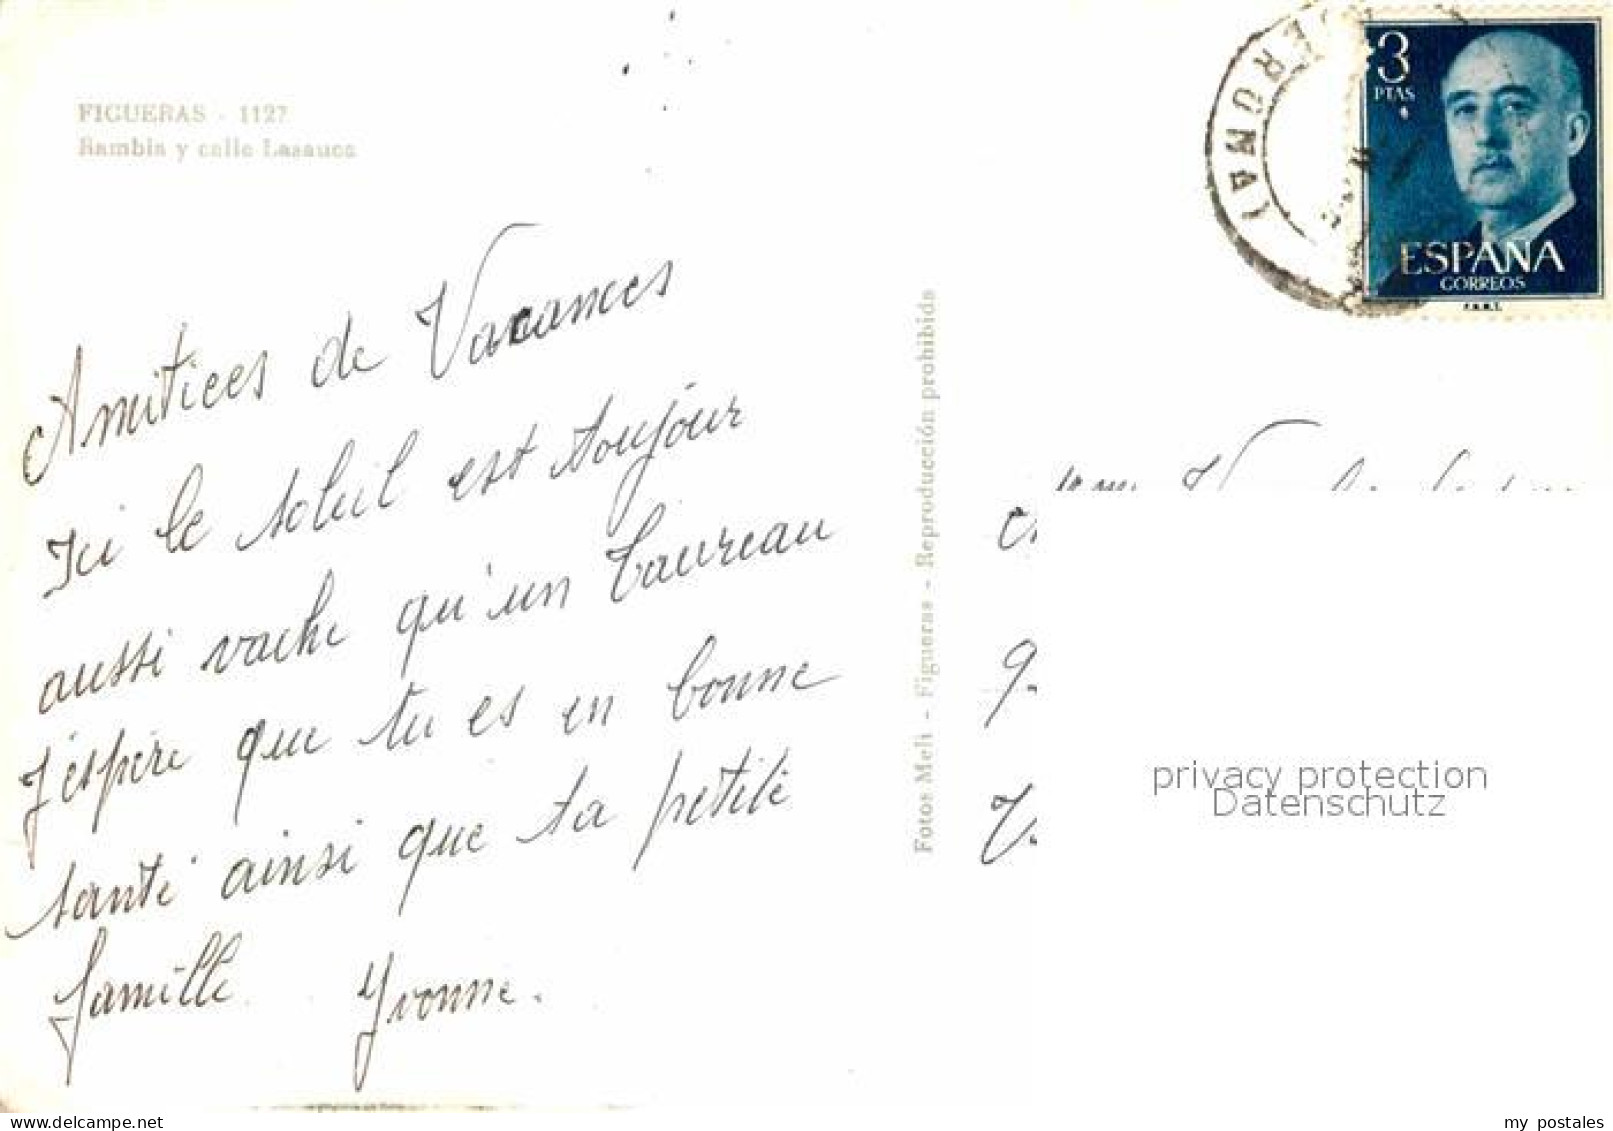 FIGUERAS - 1127
Rambla y calle Lasauca
Amitiees de Vacances
Ici le soleil est toujour
aussi vache qu'un taureau
J'espère que tu es en bonne
santé ainsi que ta petite
famille. Yvonne.
Fotos Meli - Figueras - Reproducción prohibida
GERONA)
3
PTAS
ESPAÑA
CORREOS
F.N.M.T.
privacy protection
Datenschutz
www.delcampe.net
my_postales